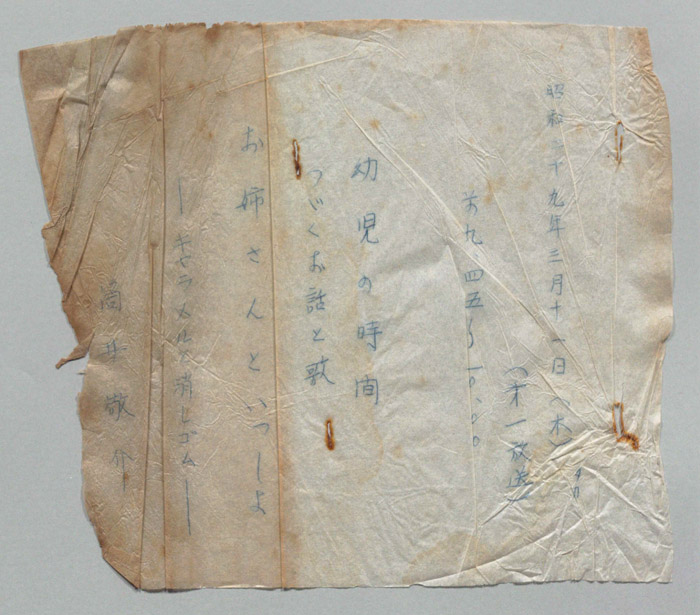 昭和二十九年三月十一日(木)
(第一放送)
前九、四五〜一〇、〇〇
幼児の時間
つゞくお話と歌
お姉さんといつしよ
―キャラメルと消しゴム―
筒井敬介